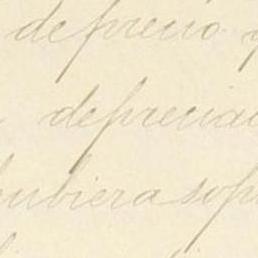 de precio
depreciac
hubiera sop